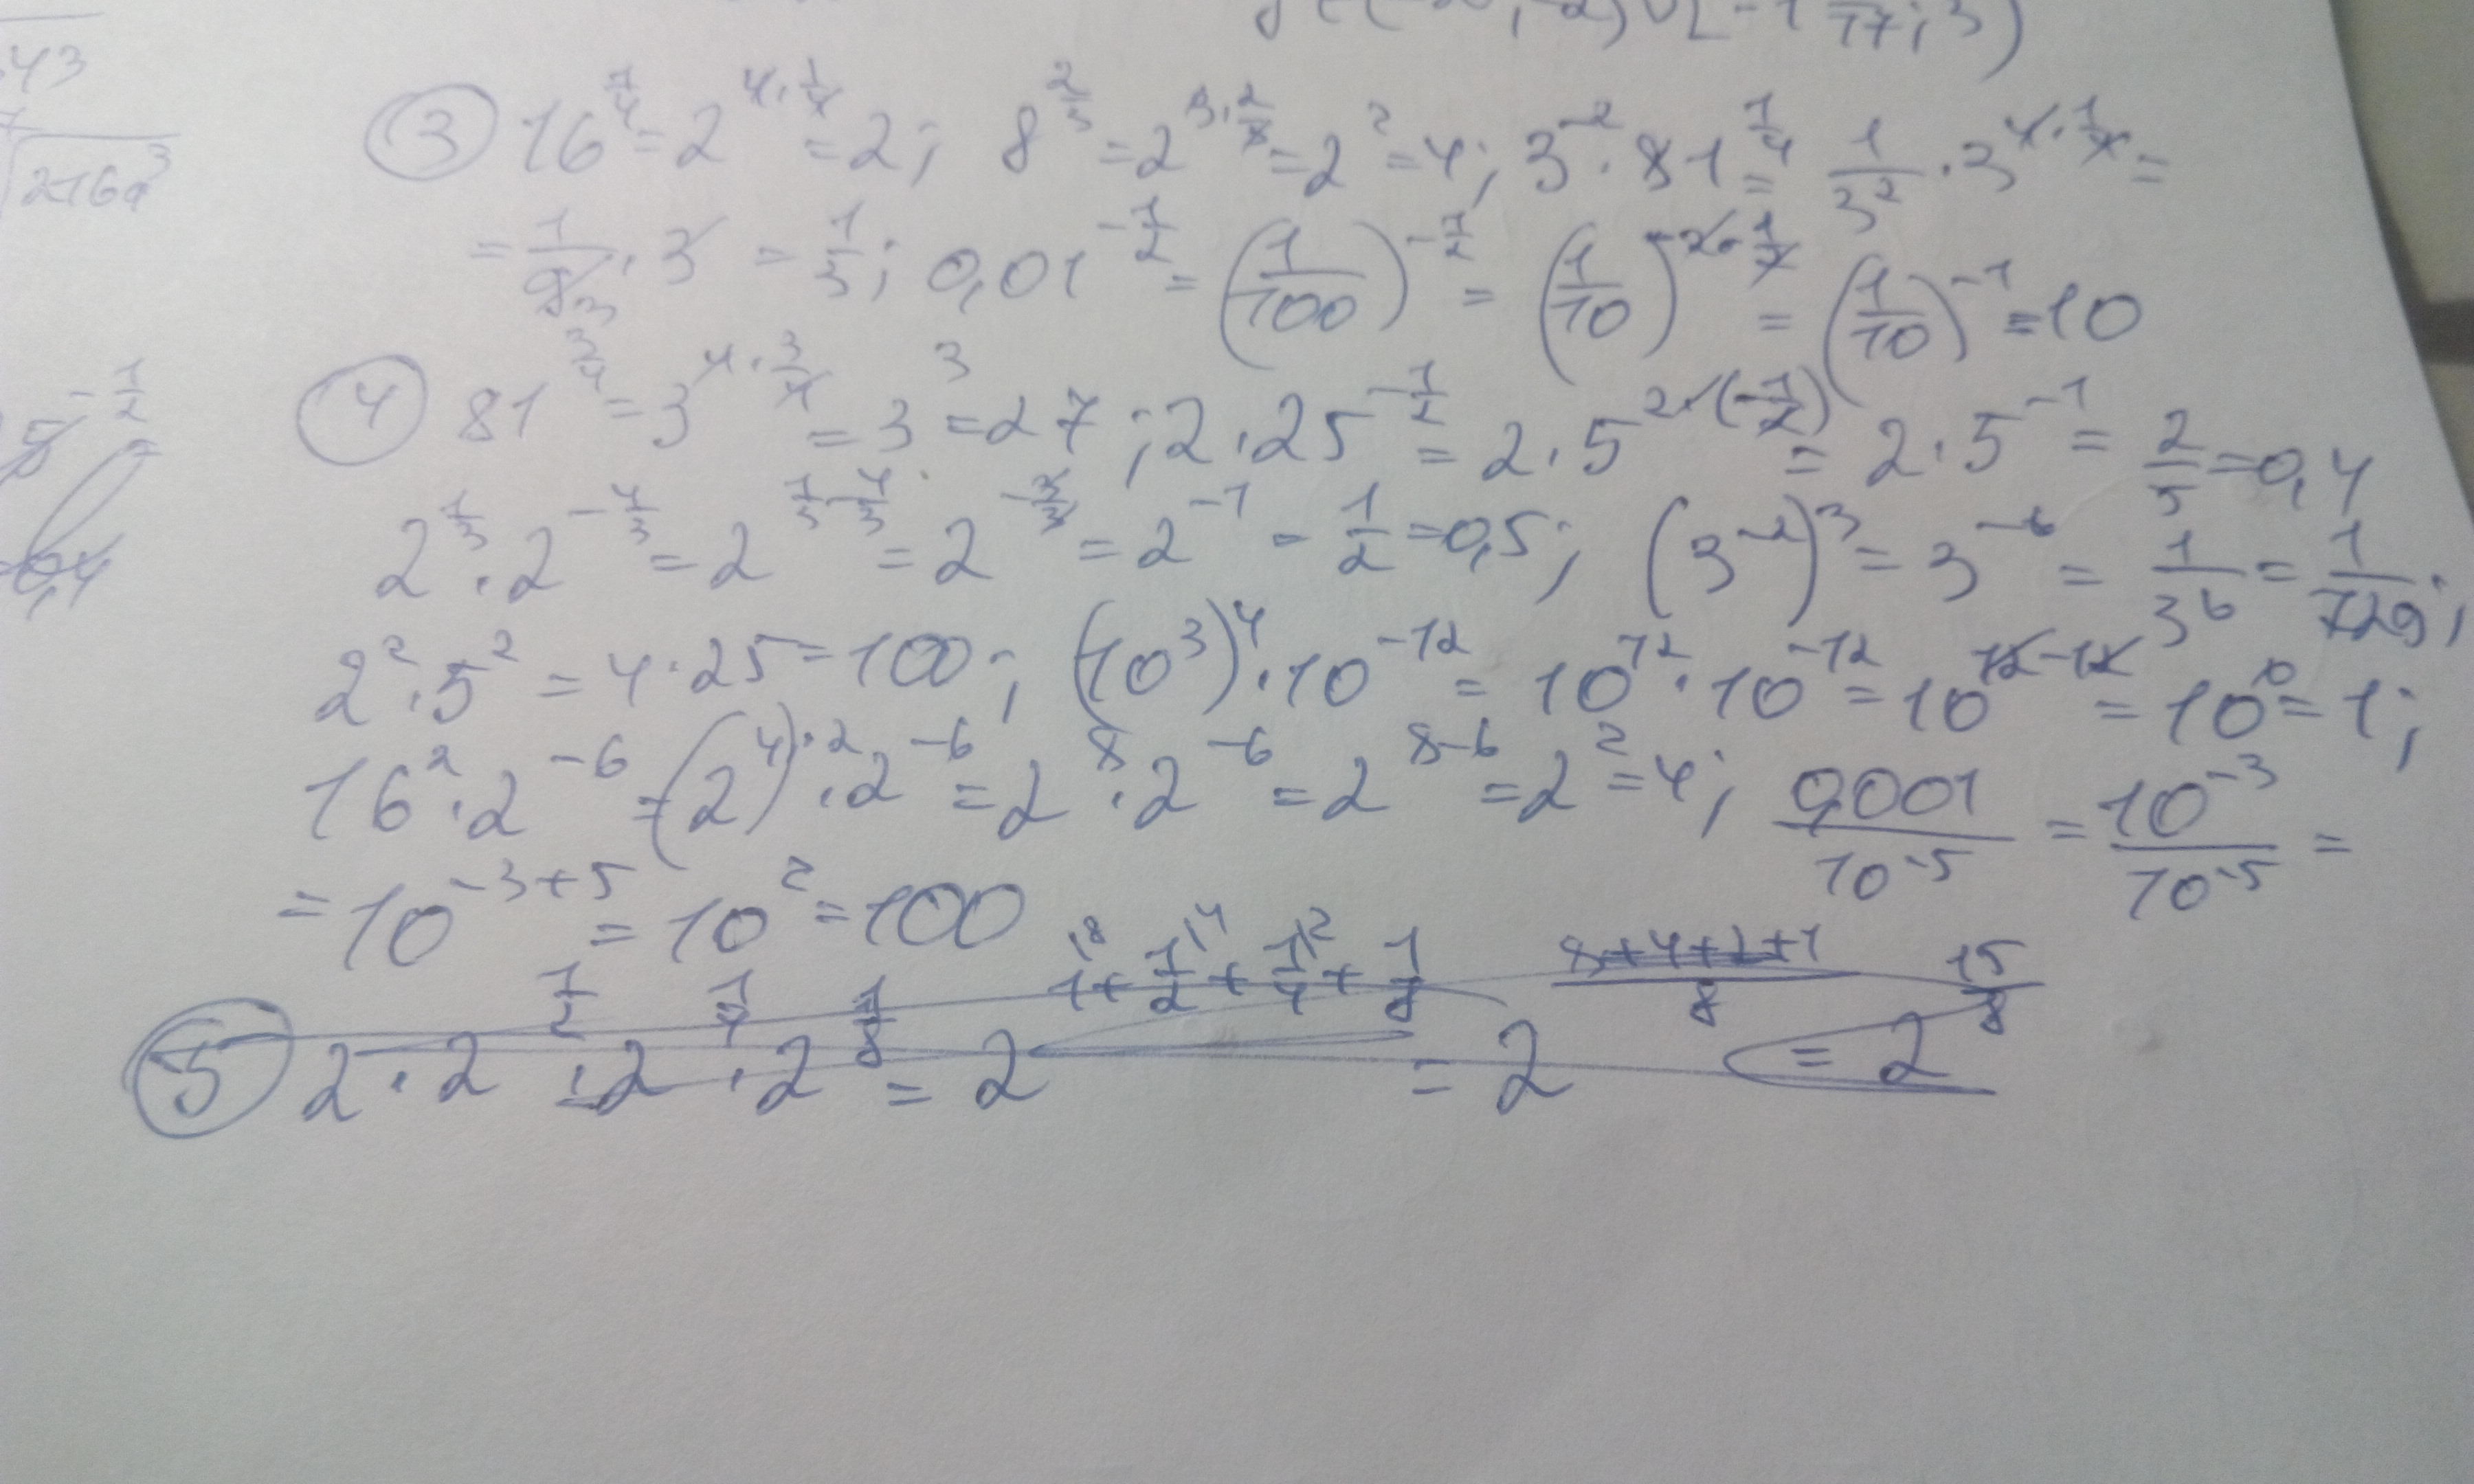 ③ 16^(1/4) = 2^(4·1/4) = 2; 8^(2/3) = 2^(3·2/3) = 2^2 = 4; 3^(-2) · 81^(1/4) = 1/3^2 · 3^(4·1/4) =
= 1/9 · 3 = 1/3; 0,01^(-1/2) = (1/100)^(-1/2) = (1/10)^(-2·1/2) = (1/10)^(-1) = 10
④ 81^(3/4) = 3^(4·3/4) = 3^3 = 27; 2·25^(-1/2) = 2·5^(2·(-1/2)) = 2·5^(-1) = 2/5 = 0,4
2^(1/3) · 2^(-4/3) = 2^(1/3-4/3) = 2^(-3/3) = 2^(-1) = 1/2 = 0,5; (3^(-2))^3 = 3^(-6) = 1/3^6 = 1/729;
2^2 · 5^2 = 4·25 = 100; (10^3)^4 · 10^(-12) = 10^12 · 10^(-12) = 10^(12-12) = 10^0 = 1;
16^2 · 2^(-6) = (2^4)^(·2) · 2^(-6) = 2^8 · 2^(-6) = 2^(8-6) = 2^2 = 4; 0,001/10^(-5) = 10^(-3)/10^(-5) =
= 10^(-3+5) = 10^2 = 100
⑤ 2 · 2^(1/2) · 2^(1/4) · 2^(1/8) = 2^(1+1/2+1/4+1/8) = 2^((8+4+2+1)/8) = 2^(15/8)